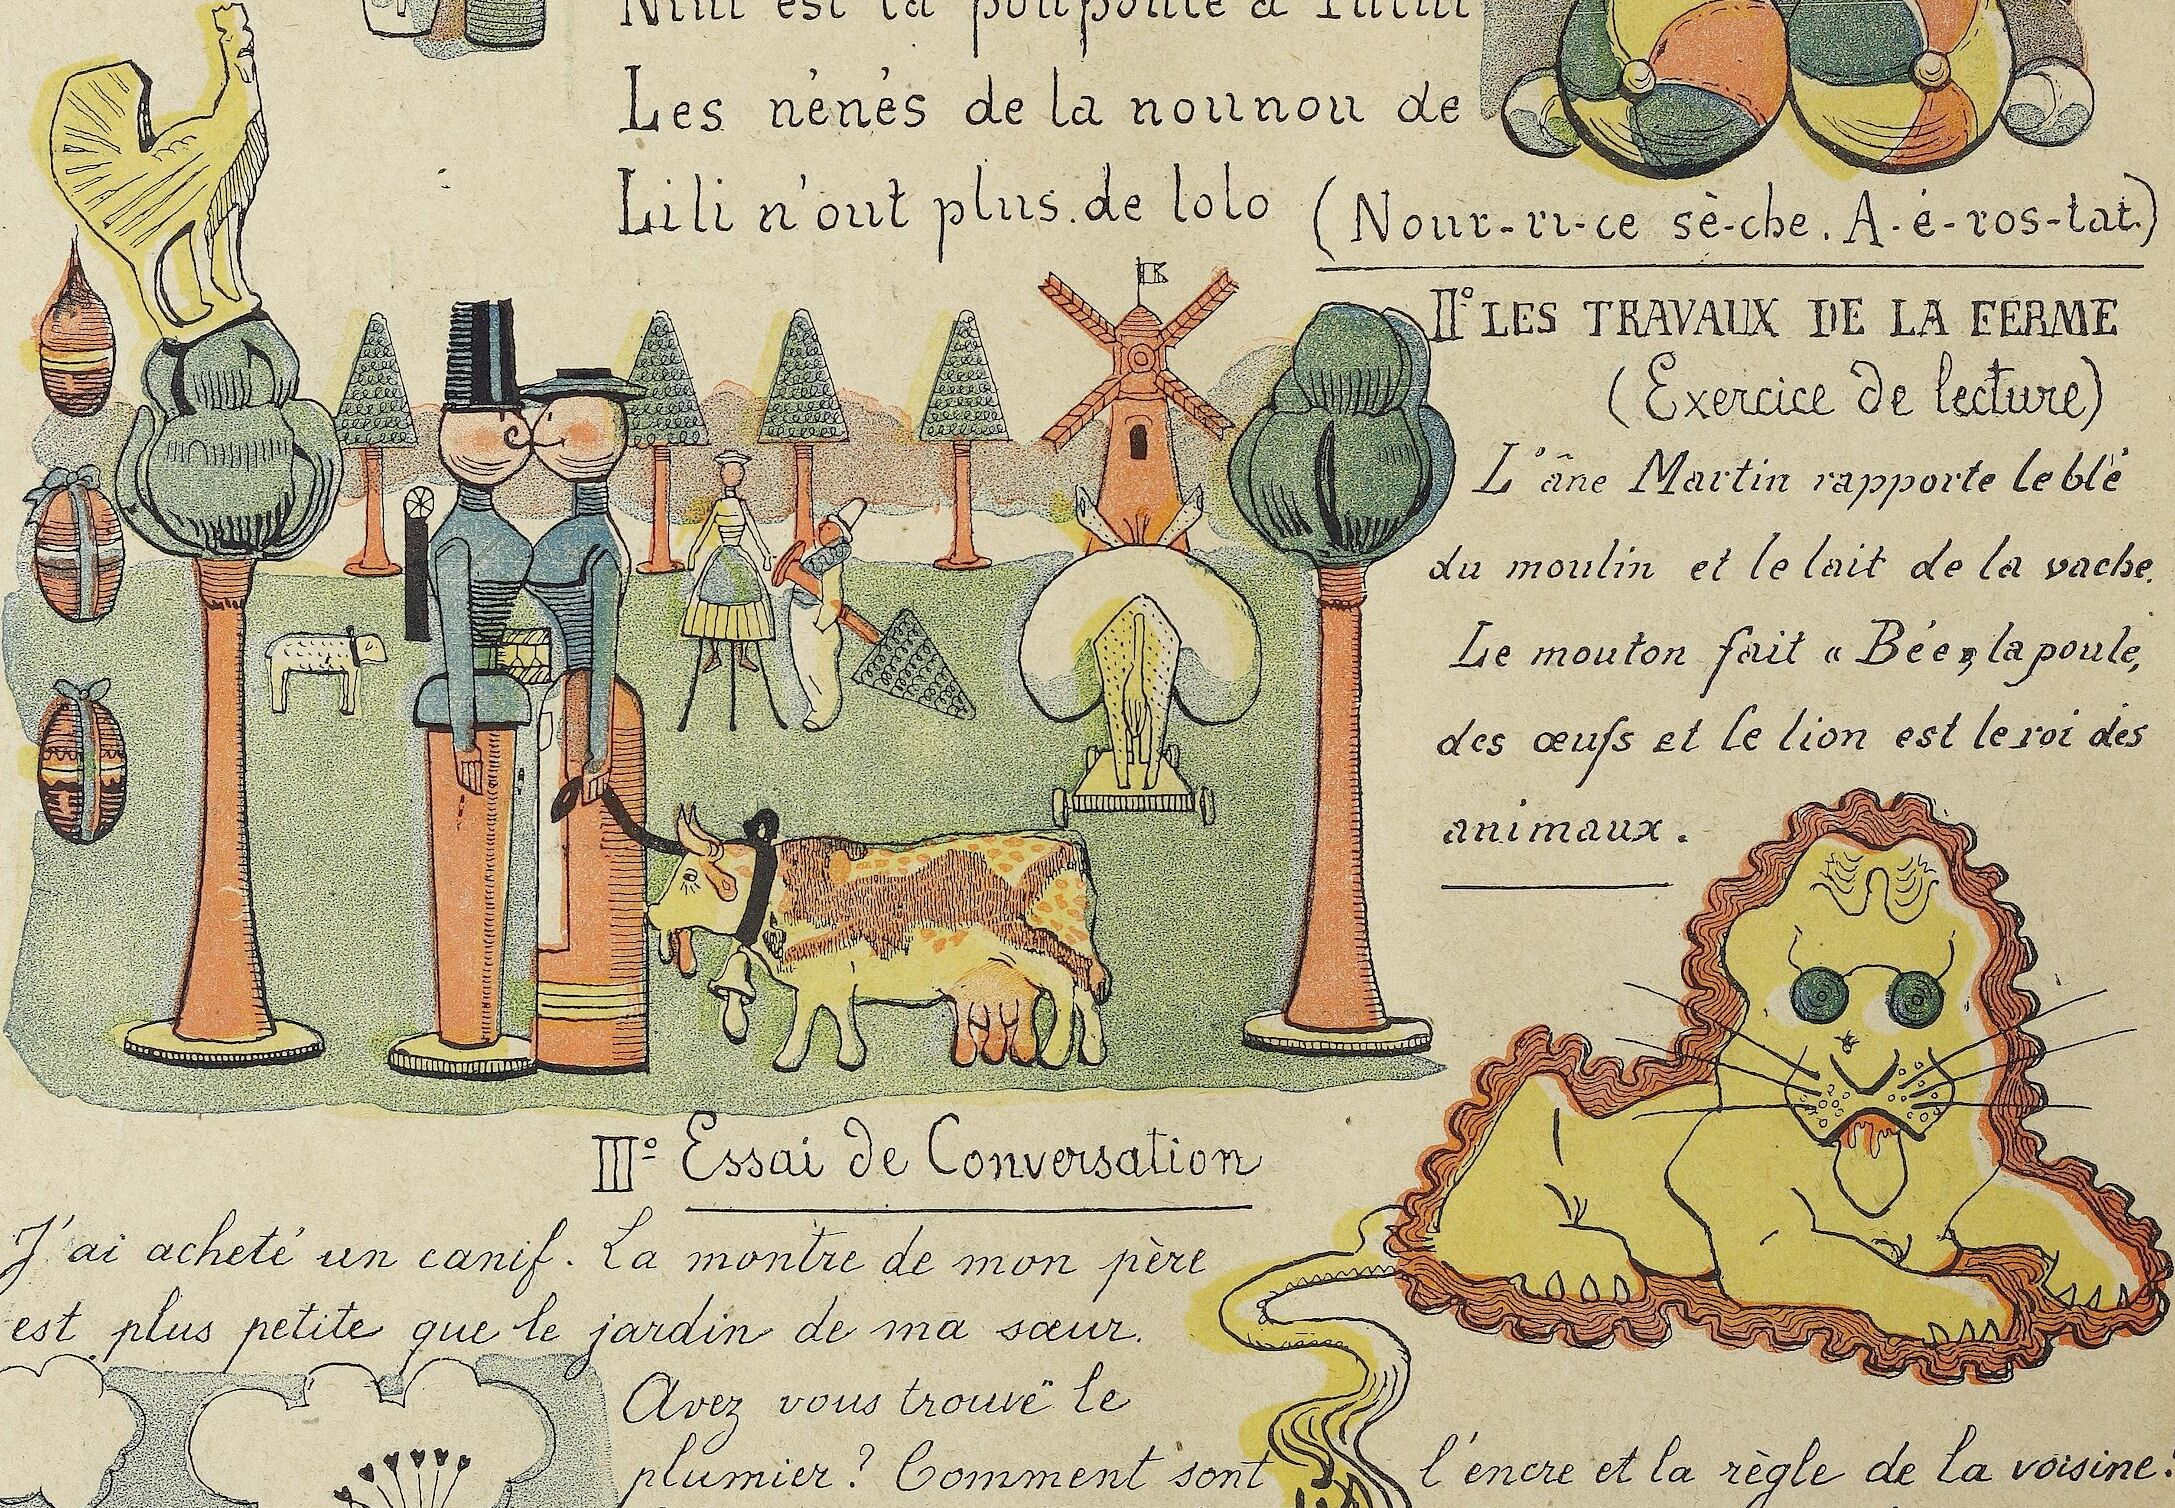 Nini est la poupoule à Tutur
Les nénés de la nounou de
Lili n'out plus de lolo (Nour-ri-ce sè-che. A-é-ros-tat.)
II° LES TRAVAUX DE LA FERME
(Exercice de lecture)
L'âne Martin rapporte le blé
du moulin et le lait de la vache.
Le mouton fait « Bée », la poule,
des œufs et le lion est le roi des
animaux.
III° Essai de Conversation
J'ai acheté un canif. La montre de mon père
est plus petite que le jardin de ma sœur.
Avez vous trouvé le
plumier? Comment sont l'encre et la règle de la voisine?